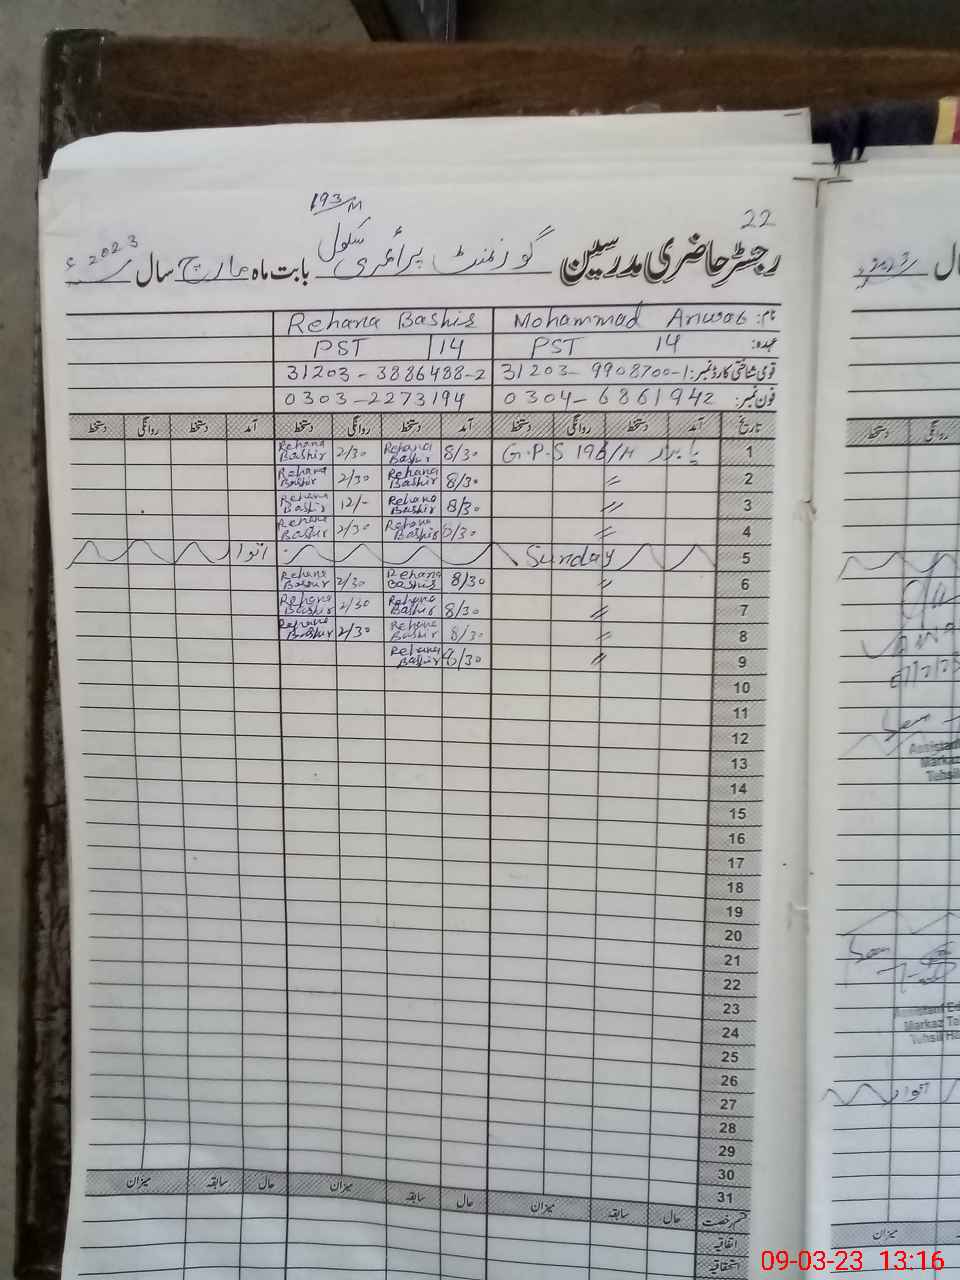 193/M
22
رجسٹر حاضری مدرسین گورنمنٹ پرائمری سکول بابت ماہ مارچ سال 2023ء
نام: Mohammad Anwab Rehana Bashir
عہدہ: PST 14 PST 14
قومی شناختی کارڈ نمبر: 31203-9908700-1 31203-3886488-2
فون نمبر: 0304-6861942 0303-2273194
تاریخ آمد دستخط روانگی دستخط آمد دستخط روانگی دستخط آمد دستخط روانگی دستخط
1 G.P.S 193/M 8/30 Rehana Bashir 2/30 Rehana Bashir
2 〃 8/30 Rehana Bashir 2/30 Rehana Bashir
3 〃 8/30 Rehana Bashir 12/- Rehana Bashir
4 〃 8/30 Rehana Bashir 2/30 Rehana Bashir
5 Sunday اتوار
6 〃 8/30 Rehana Bashir 2/30 Rehana Bashir
7 〃 8/30 Rehana Bashir 2/30 Rehana Bashir
8 〃 8/30 Rehana Bashir 2/30 Rehana Bashir
9 〃 8/30 Rehana Bashir
10
11
12
13
14
15
16
17
18
19
20
21
22
23
24
25
26
27
28
29
30
31
قسم رخصت حال سابقہ میزان حال سابقہ میزان حال سابقہ میزان
اتفاقیہ
استحقاقیہ
سال
دستخط روانگی
Assistant
Markaz
Tehsil
Assistant Ed
Markaz Te
Tehsil Ha
اتوار
میزان
09-03-23 13:16